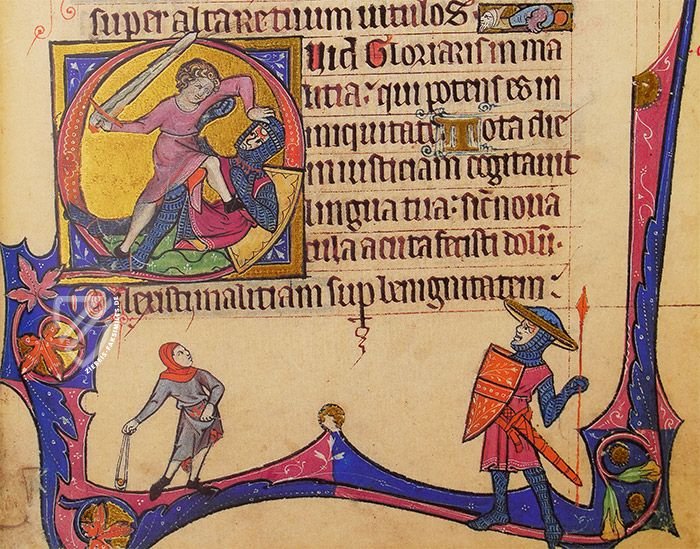 super altare tuum uitulos
Quid Gloriaris in ma
litia: qui potens es in
iniquitate Tota die
iniusticiam cogitauit
lingua tua: sic noua
cula acuta fecisti dolū.
Dilexisti malitiam sup benignitatem:
ZIEREIS-FAKSIMILES.DE